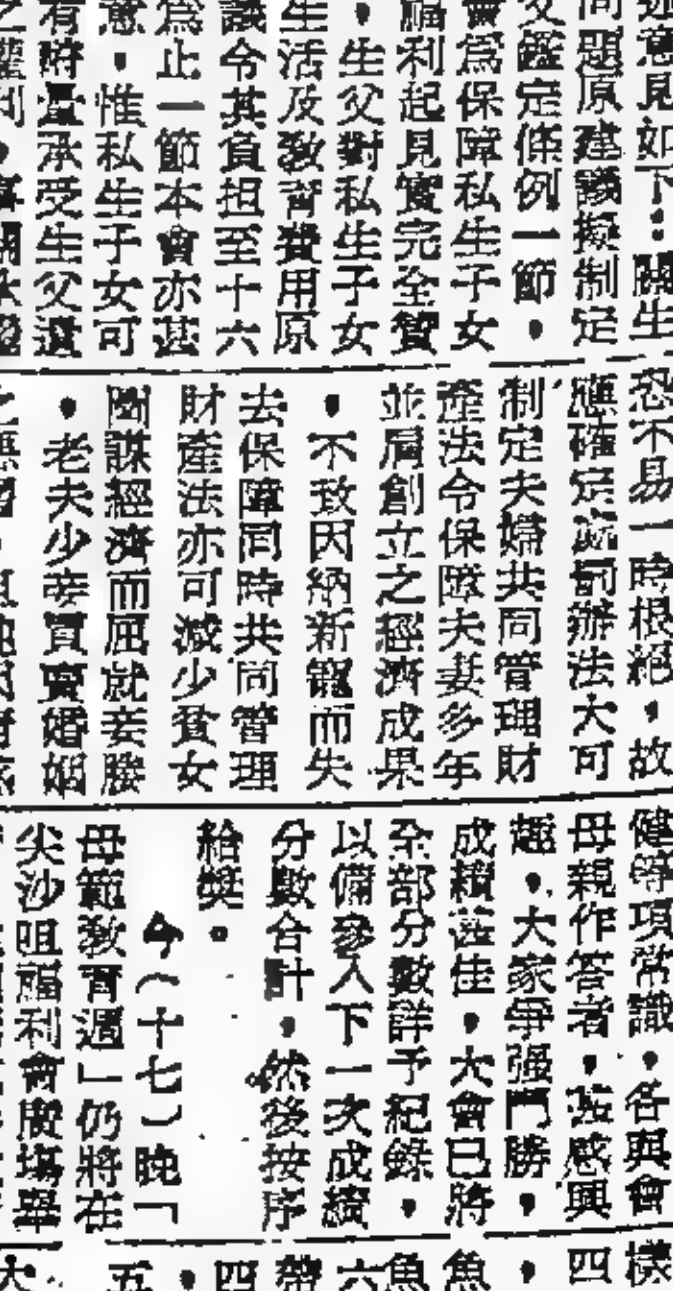 述意見如下：關生
問題原建議擬制定
父鑑定條例一節，
會爲保障私生子女
福利起見實完全贊
，生父對私生子女
生活及教育費用原
議令其負担至十六
爲止一節本會亦甚
意，惟私生子女可
有時量承受生父遺
之權利，
恐不易一時根絕，故
應確定處罰辦法大可
制定夫婦共同管理財
產法令保障夫妻多年
並肩創立之經濟成果
，不致因納新寵而失
去保障同時共同管理
財產法亦可減少貧女
圖謀經濟而屈就妾媵
，老夫少妾買賣婚姻
健等項常識，各與會
母親作答者，甚感興
趣，大家爭强鬥勝，
成績甚佳，大會已將
全部分數詳予紀錄，
以備參入下一次成績
分數合計，然後按序
給獎。
今（十七）晚「
母範教育週」仍將在
尖沙咀福利會廣塲舉
樣
四，
魚
魚
六
帶
四
，
五
大